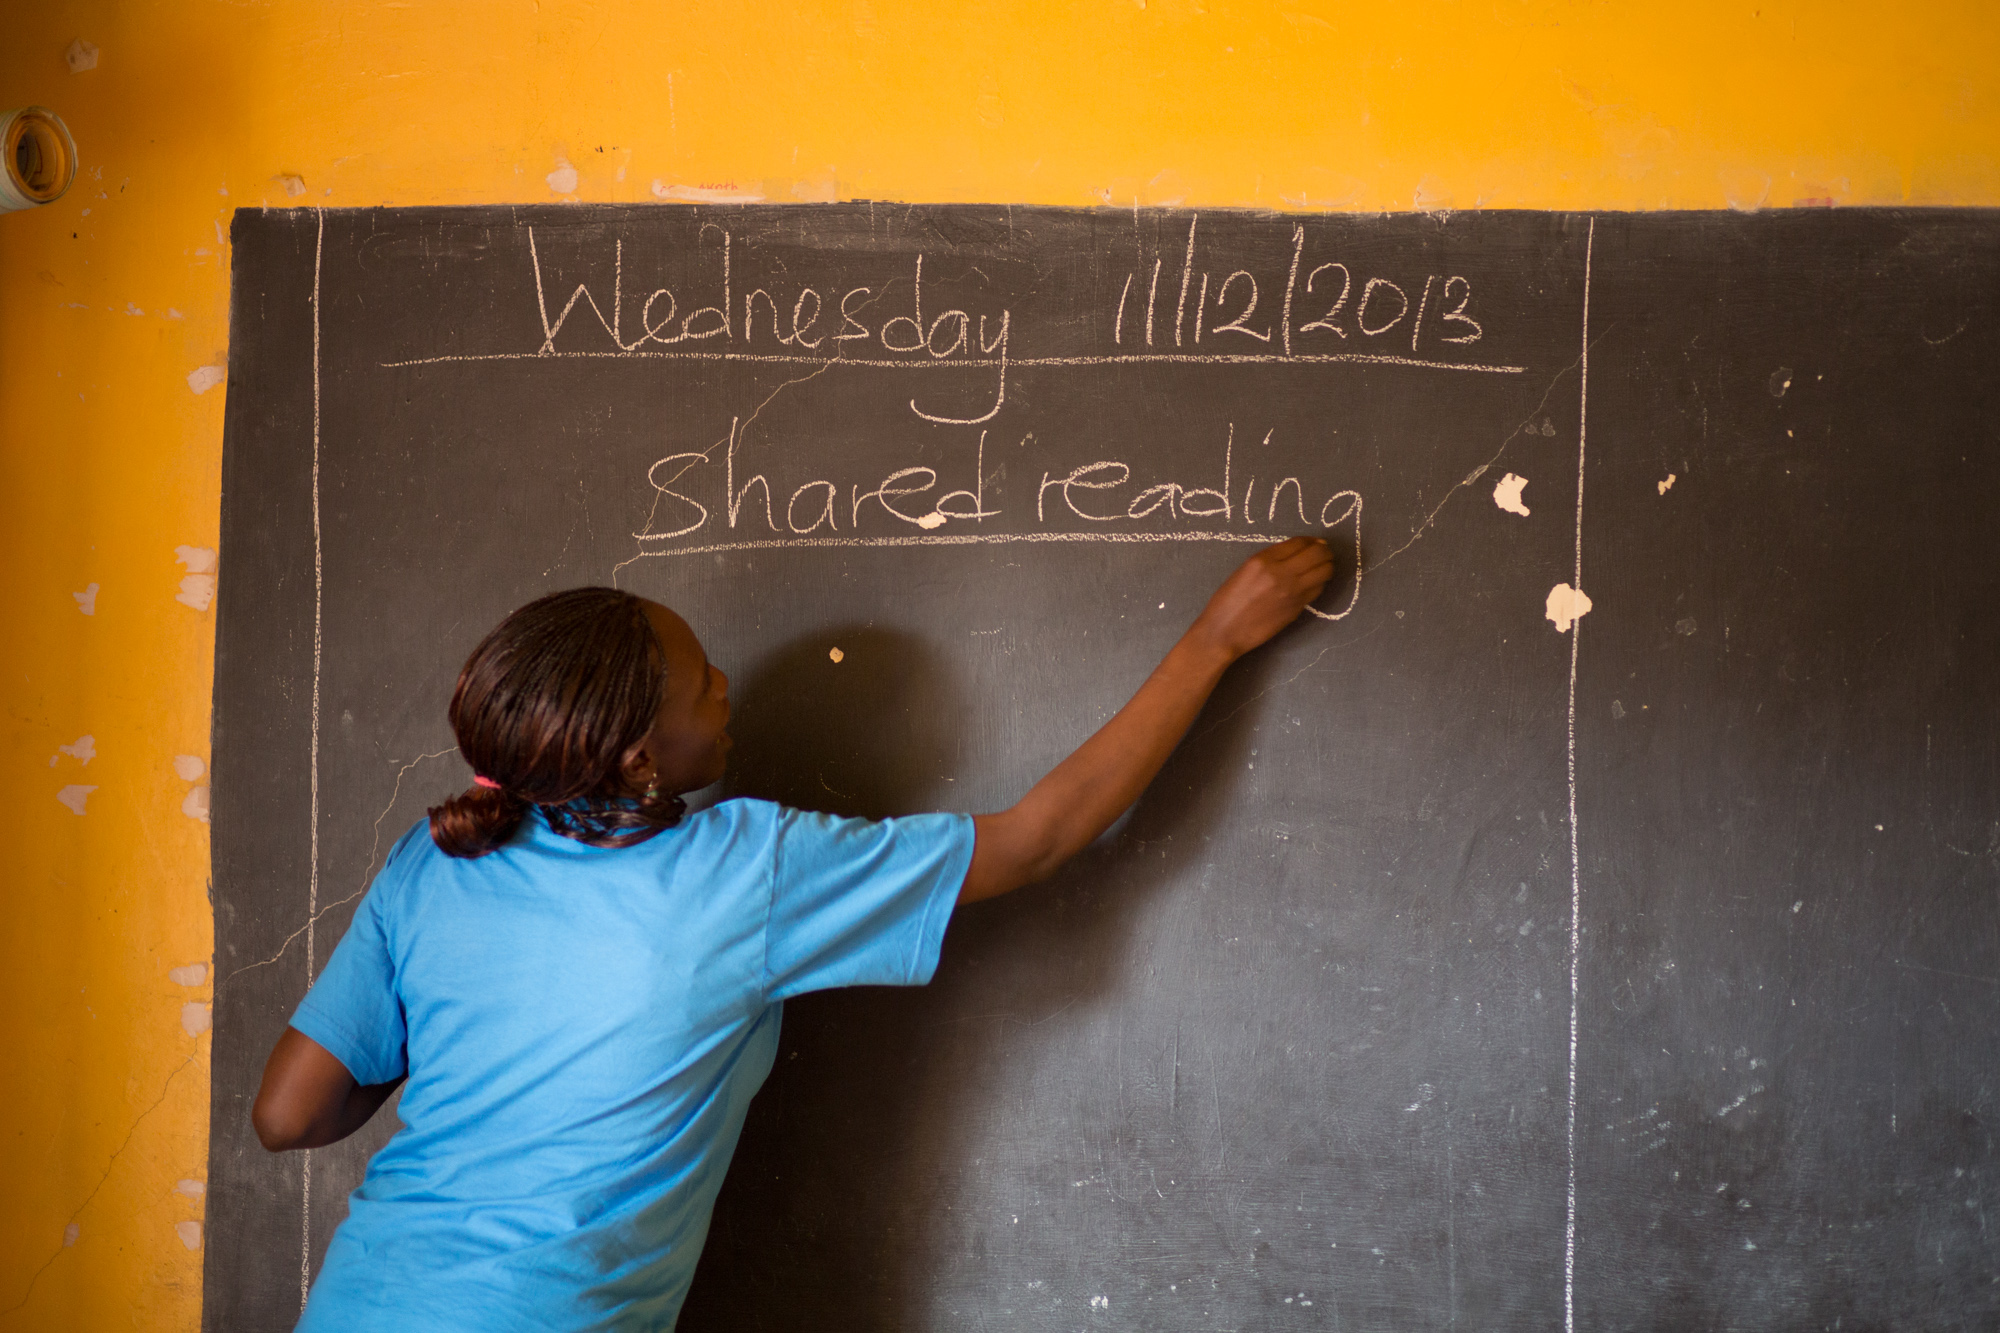 Wednesday 11/12/2013
Shared reading